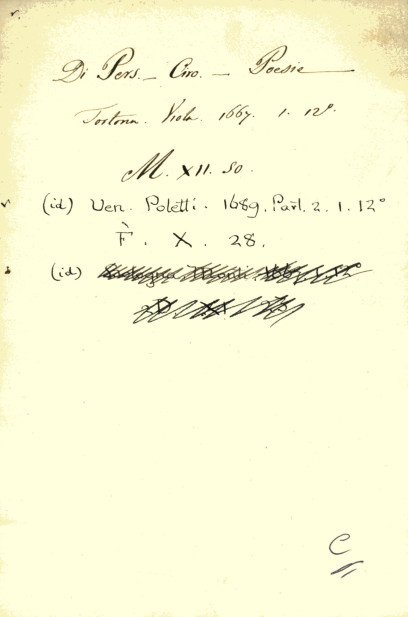 Di Pers. _ Ciro. _ Poesie
Tortona. Viola. 1667. 1. 12º.
M. XII. 50.
(id) Ven. Poletti. 1689. Part. 2. 1. 12º
F. X. 28.
(id)
C